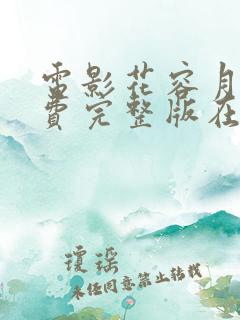 电影花容月
费完整版在
琼瑶
未经同意禁止转载